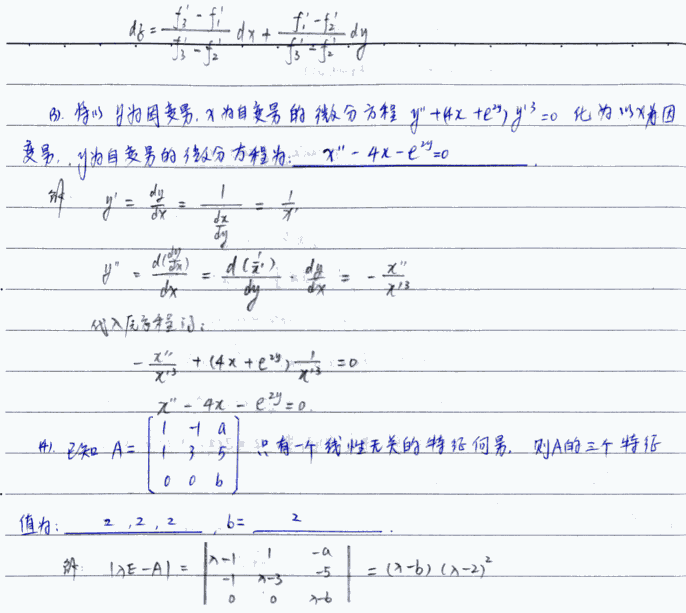 dz = (f₃' - f₁')/(f₃' - f₂') dx + (f₁' - f₂')/(f₃' - f₂') dy
(3). 将以 y为因变量, x为自变量的微分方程 y'' + (4x + e^{2y}) y'^3 = 0 化为以x为因
变量, y为自变量的微分方程为: x'' - 4x - e^{2y} = 0 .
解 y' = dy/dx = 1/(dx/dy) = 1/x'
y'' = d(dy/dx)/dx = d(1/x')/dy · dy/dx = - x''/x'^3
代入原方程得:
- x''/x'^3 + (4x + e^{2y}) 1/x'^3 = 0
x'' - 4x - e^{2y} = 0.
(4). 已知 A = [1 -1 a; 1 3 5; 0 0 b] 只有一个线性无关的特征向量, 则A的三个特征
值为: 2 , 2 , 2 , b = 2 .
解 |λE - A| = |λ-1 1 -a; -1 λ-3 -5; 0 0 λ-b| = (λ-b)(λ-2)²